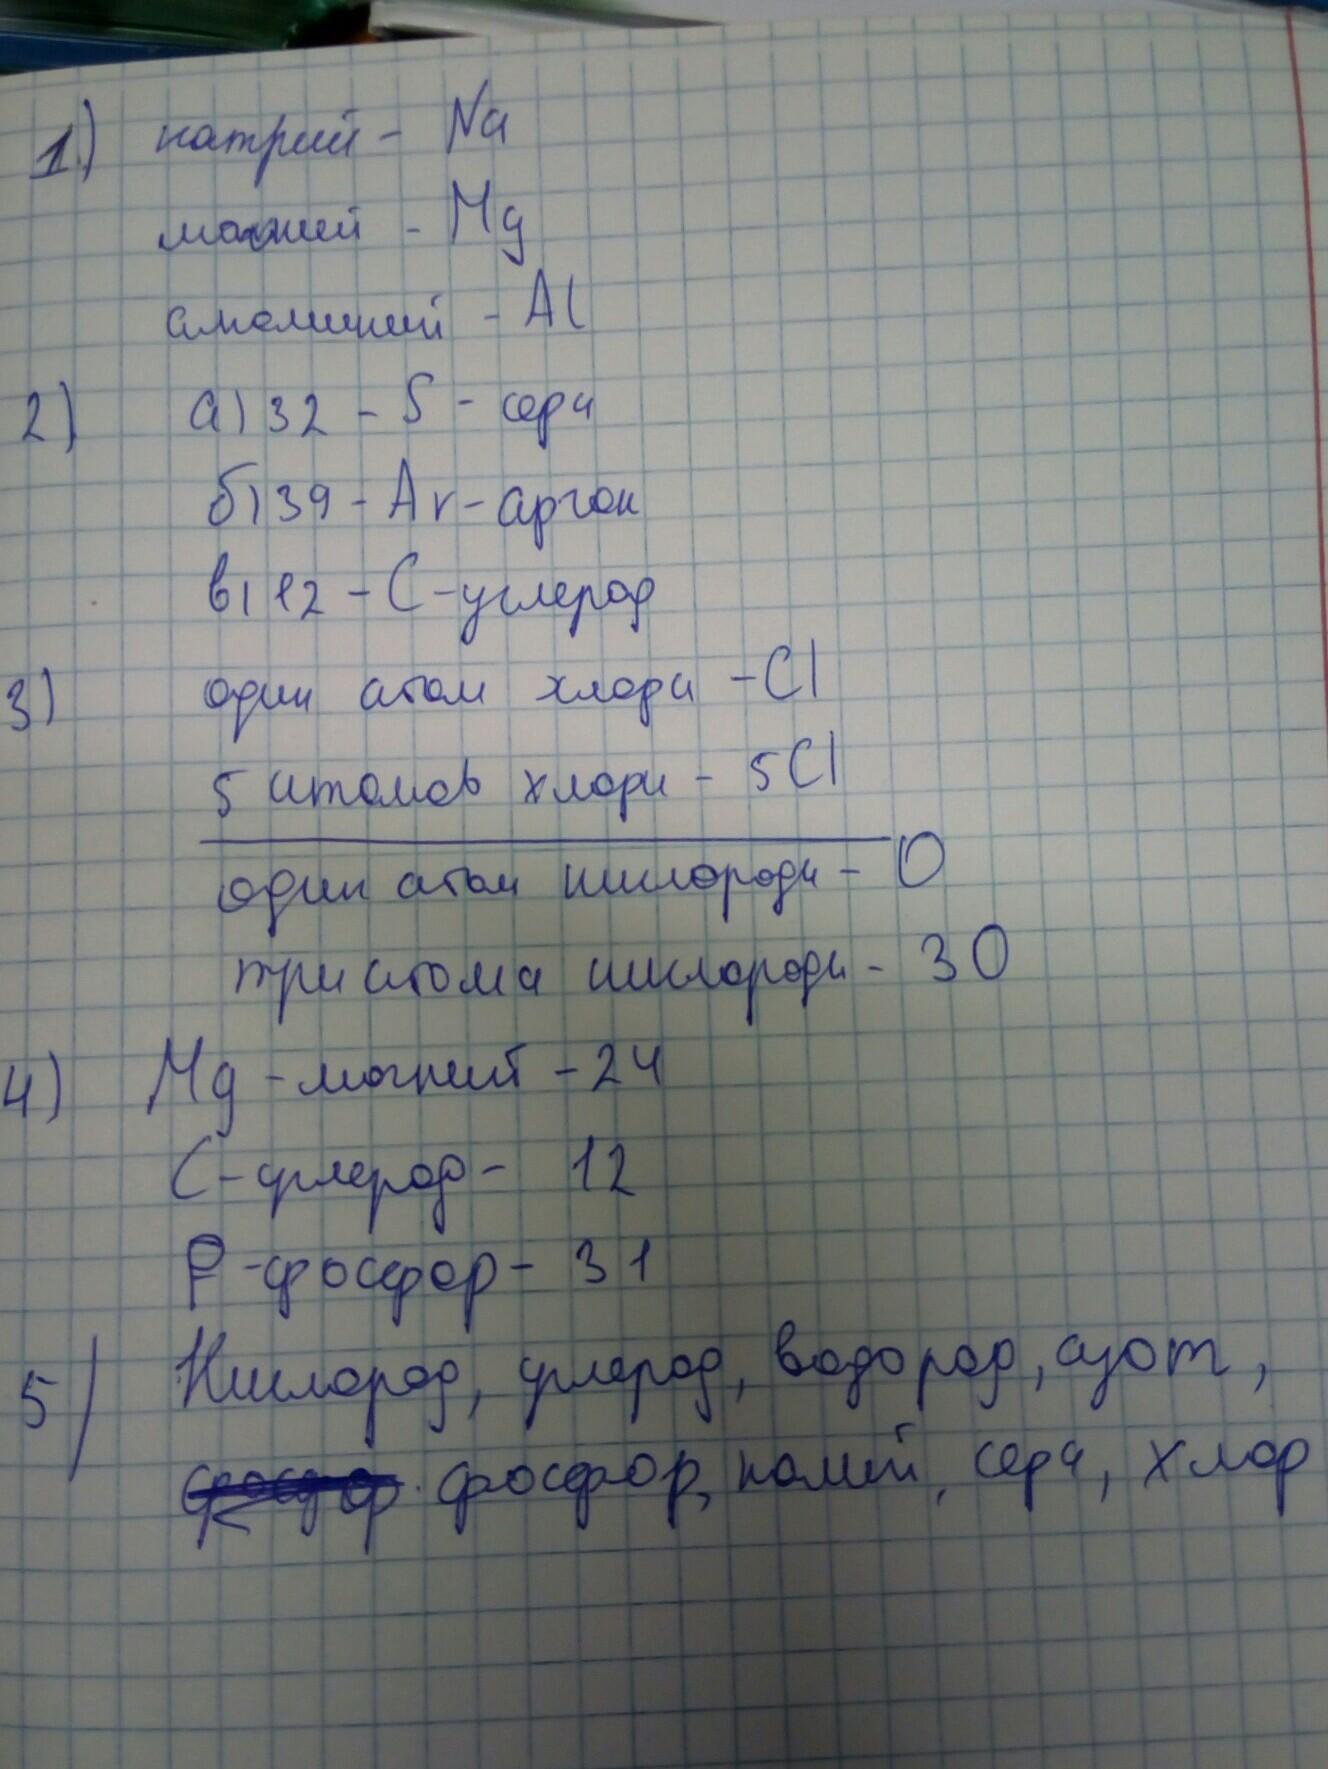 1) натрий - Na
магний - Mg
алюминий - Al
2) а) 32 - S - сера
б) 39 - Ar - аргон
в) 12 - C - углерод
3) один атом хлора - Cl
5 атомов хлора - 5Cl
один атом кислорода - O
три атома кислорода - 3O
4) Mg - магний - 24
C - углерод - 12
P - фосфор - 31
5) Кислород, углерод, водород, азот,
фосфор, калий, сера, хлор